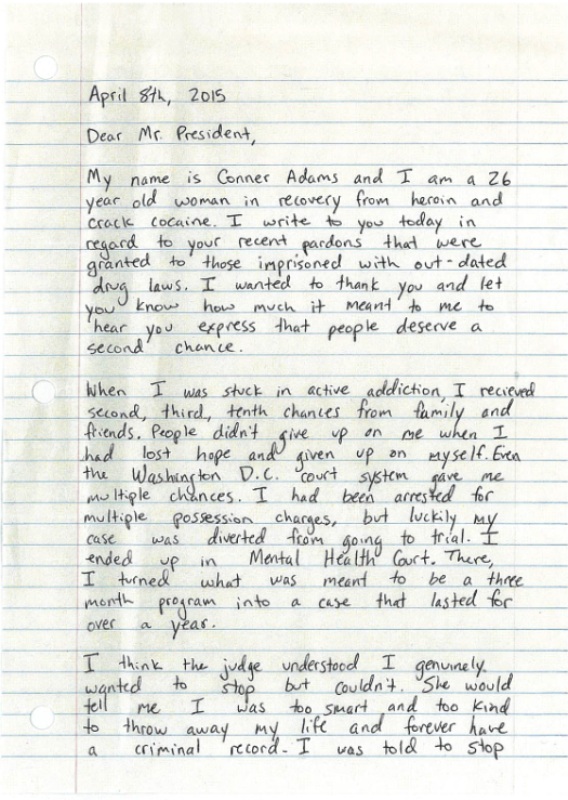 April 8th, 2015
Dear Mr. President,
My name is Conner Adams and I am a 26
year old woman in recovery from heroin and
crack cocaine. I write to you today in
regard to your recent pardons that were
granted to those imprisoned with out-dated
drug laws. I wanted to thank you and let
you know how much it meant to me to
hear you express that people deserve a
second chance.
When I was stuck in active addiction, I recieved
second, third, tenth chances from family and
friends. People didn't give up on me when I
had lost hope and given up on myself. Even
the Washington D.C. court system gave me
multiple chances. I had been arrested for
multiple possession charges, but luckily my
case was diverted from going to trial. I
ended up in Mental Health Court. There,
I turned what was meant to be a three
month program into a case that lasted for
over a year.
I think the judge understood I genuinely
wanted to stop but couldn't. She would
tell me I was too smart and too kind
to throw away my life and forever have
a criminal record. I was told to stop